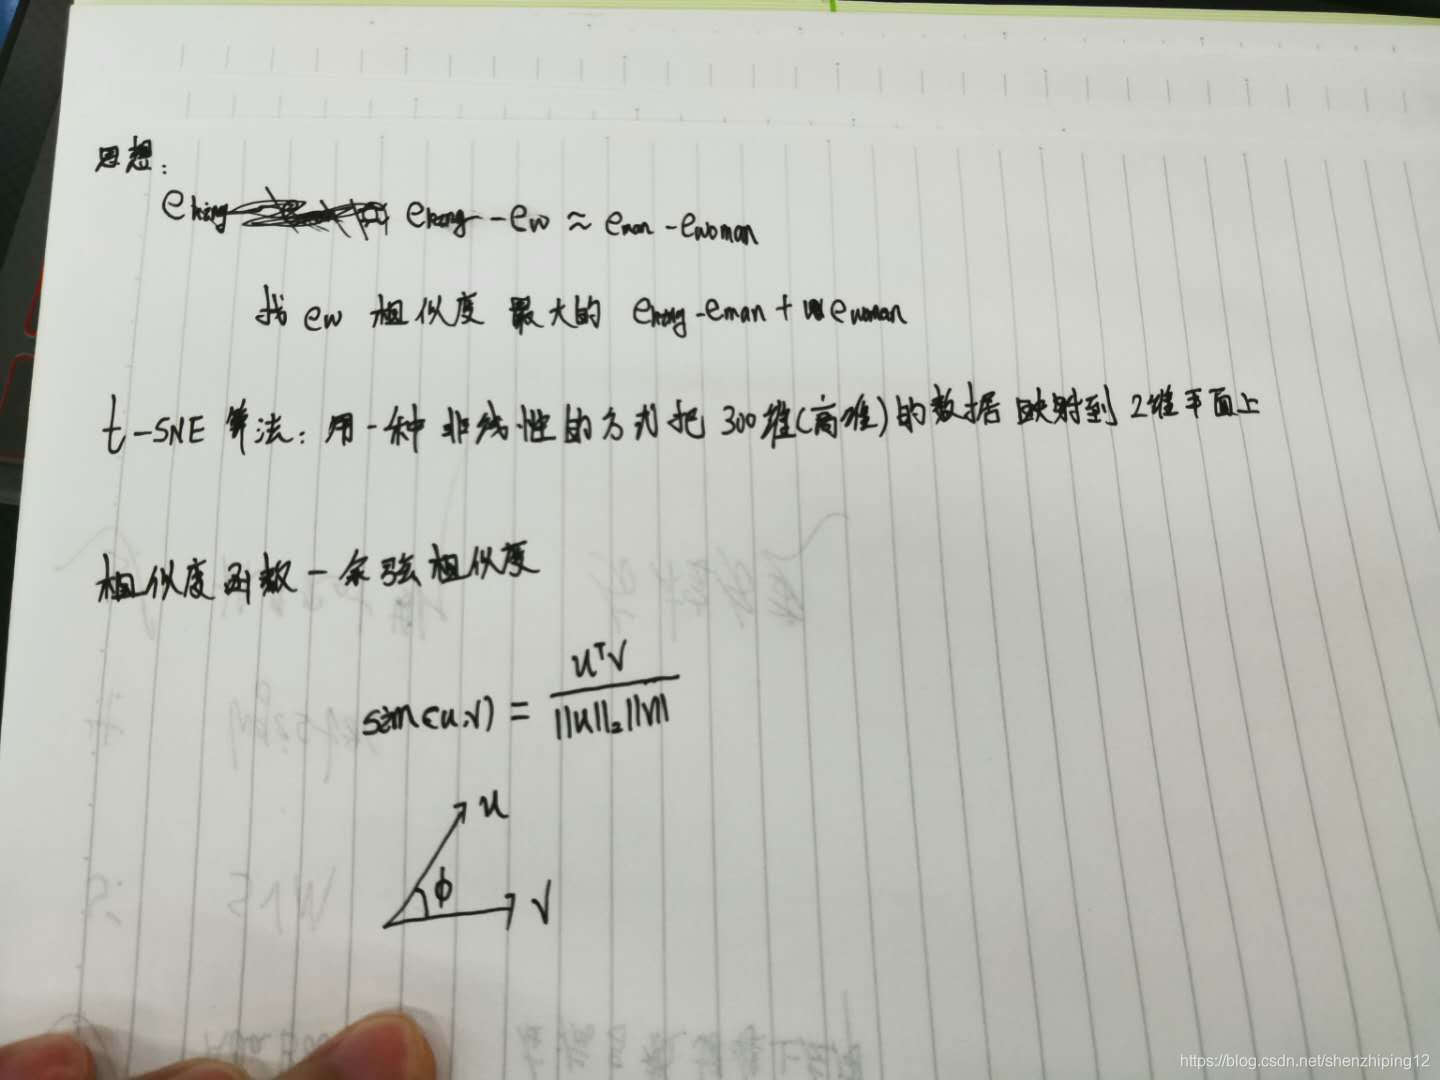 思想：
eking eking - ew ≈ eman - ewoman
找 ew 相似度 最大的 eking - eman + ewoman
t-SNE 算法：用一种 非线性的方式把 300维(高维)的数据 映射到 2维平面上
相似度函数 - 余弦相似度
sim(u,v) = uᵀv / ||u||₂||v||
u
ϕ
v
https://blog.csdn.net/shenzhiping12